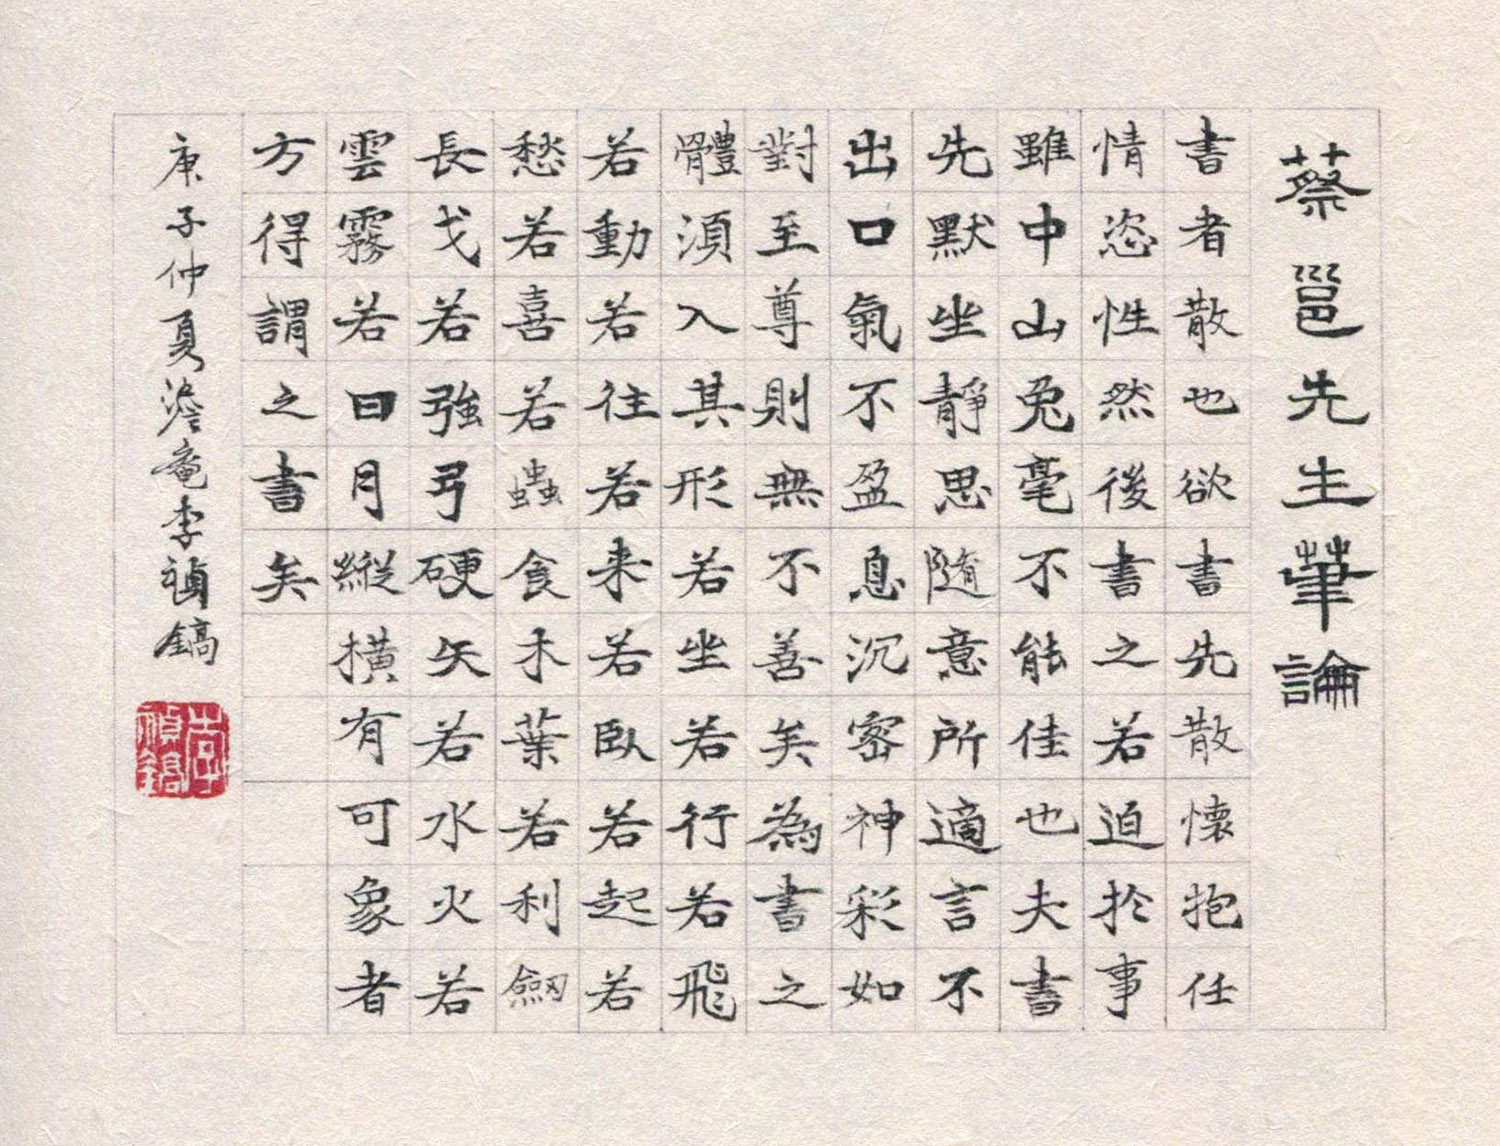 蔡邕先生筆論
書者散也欲書先散懷抱任
情恣性然後書之若迫於事
雖中山兔毫不能佳也夫書
先默坐靜思隨意所適言不
出口氣不盈息沉密神彩如
對至尊則無不善矣為書之
體須入其形若坐若行若飛
若動若往若来若臥若起若
愁若喜若蟲食木葉若利劔
長戈若強弓硬矢若水火若
雲霧若日月縱橫有可象者
方得謂之書矣
庚子仲夏澹庵李禎鎬
李禎鎬